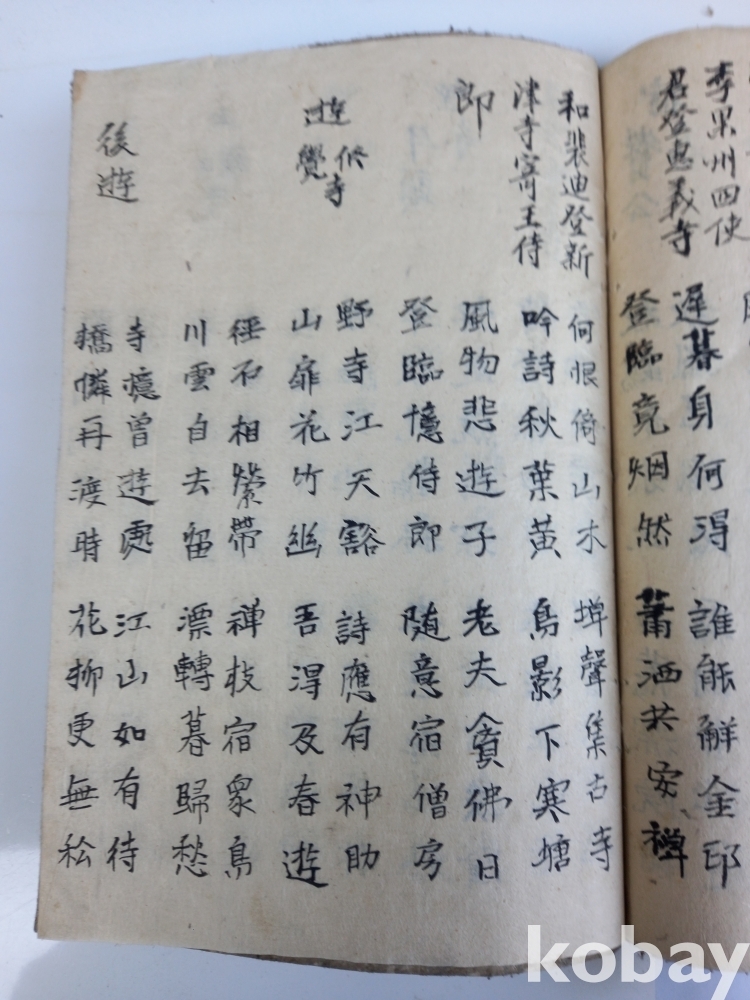 李果州四使
君登惠義寺
遲暮身何得 誰能解金印
登臨竟烟然 蕭洒共安禪
和裴迪登新
津寺寄王侍
郎
何恨倚山木 蟬聲集古寺
吟詩秋葉黃 鳥影下寒塘
風物悲遊子 老夫貪佛日
登臨憶侍郎 随意宿僧房
遊修覺寺
野寺江天豁 詩應有神助
山扉花竹幽 吾得及春遊
徑石相縈帶 禅枝宿衆鳥
川雲自去留 漂轉暮歸愁
後遊
寺憶曾遊處 江山如有待
橋憐再渡時 花柳更無私
kobay